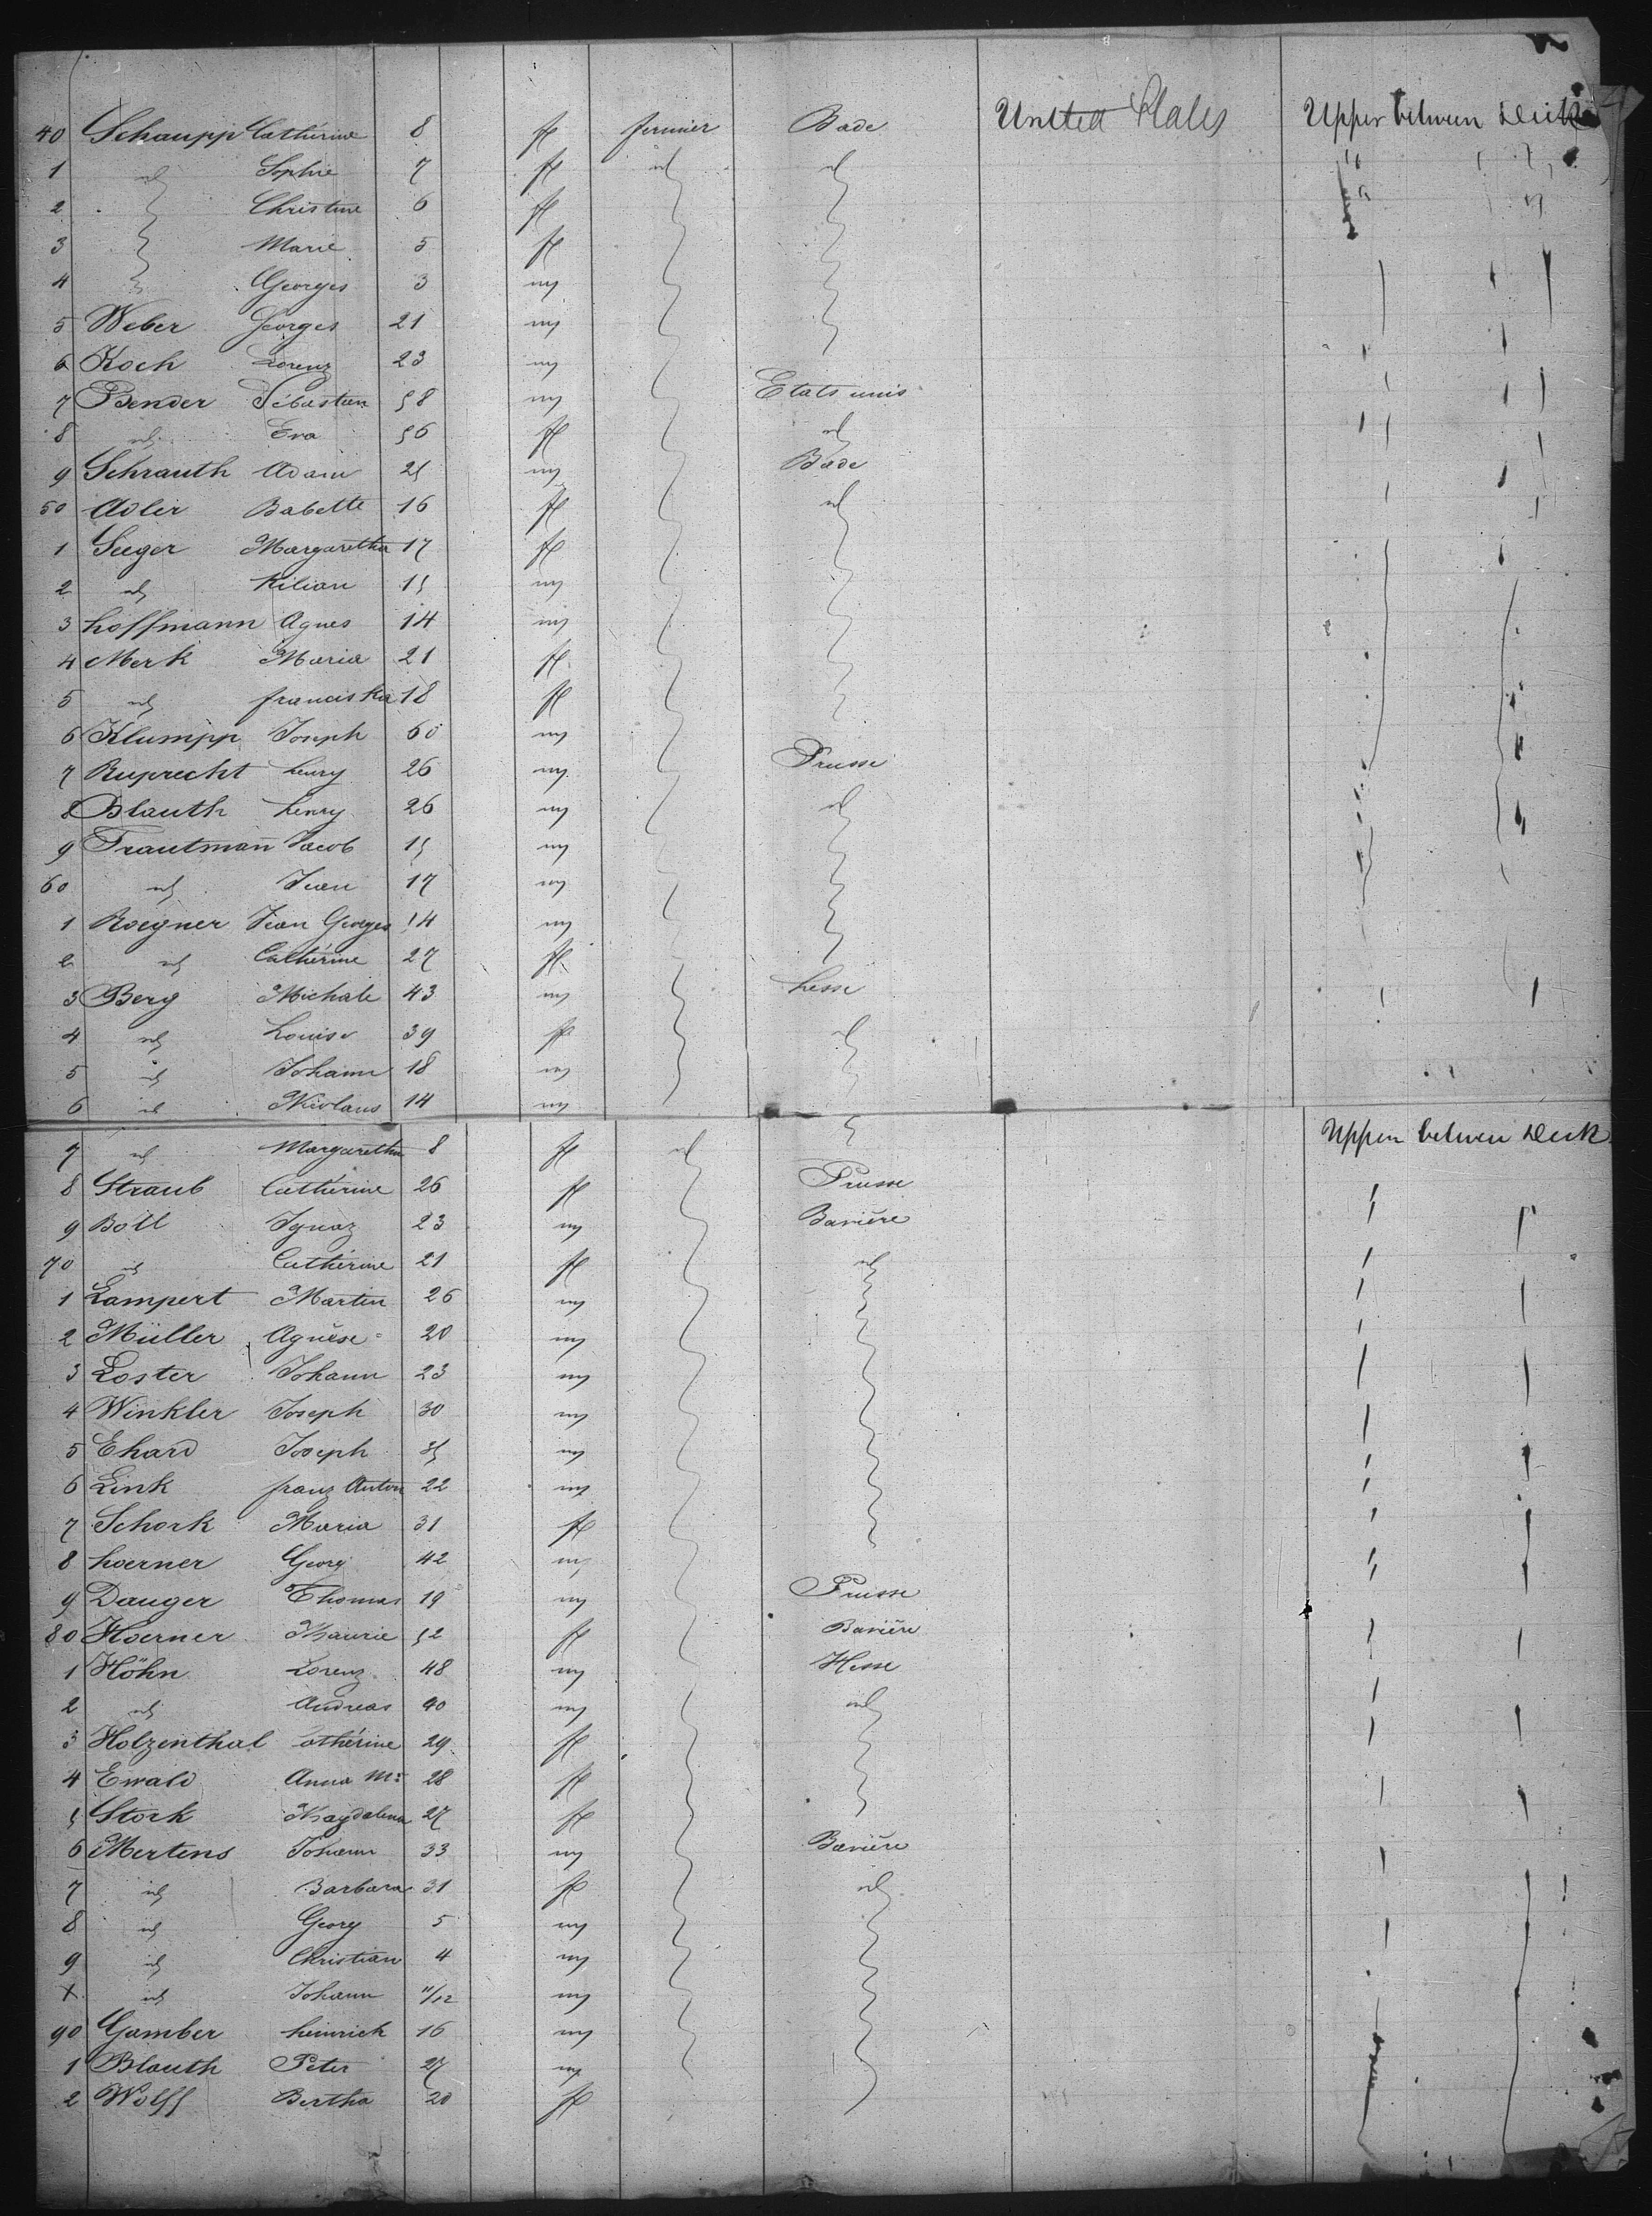 40 Schaupp Cathérine 8 fl fermier Bade United States Upper between Deck
1 id Sophie 7 fl id id
2 Christine 6 fl
3 Marie 5 fl
4 Georges 3 m
5 Weber Georges 21 m
6 Koch Lorenz 23 m
7 Bender Sébastien 58 m Etats unis
8 id Eva 56 fl id
9 Schrauth Adam 25 m Bade
50 Adler Babette 16 fl id
1 Seeger Margaretha 17 fl
2 id Kilian 15 m
3 hoffmann Agnes 14 m
4 Merk Maria 21 fl
5 id franciska 18 fl
6 Klumpp Joseph 60 m
7 Ruprecht henry 26 m Prusse
8 Blauth henry 26 m id
9 Trautmann Jacob 15 m
60 id Jean 17 m
1 Roegner Jean Georges 14 m
2 id Cathérine 27 fl
3 Berg Michale 43 m hesse
4 id Louise 39 fl id
5 id Johann 18 m
6 id Nicolaus 14 m
7 id Margaretha 8 fl id Upper between Deck
8 Straub Cathérine 26 fl Prusse
9 Böll Ignaz 23 m Bavière
70 id Cathérine 21 fl id
1 Lampert Martin 26 m
2 Müller Agnèse 20 m
3 Loster Johann 23 m
4 Winkler Joseph 30 m
5 Ehard Joseph m
6 Link franz Anton 22 m
7 Schork Maria 31 fl
8 hoerner Georg 42 m
9 Dauger Thomas 19 m Prusse
80 Hoerner Maurie 52 fl Bavière
1 Höhn Lorenz 48 m Hesse
2 id Andreas 40 m id
3 Holzenthal Cathérine 29 fl
4 Ewald Anna Ma 28 fl
5 Stork Magdalena 27 fl
6 Mertens Johann 33 m Bavière
7 id Barbara 31 fl id
8 id Georg 5 m
9 id Christian 4 m
X id Johann 11/12 m
90 Gamber heinrich 16 m
1 Blauth Peter 27 m
2 Wolff Bertha 20 fl